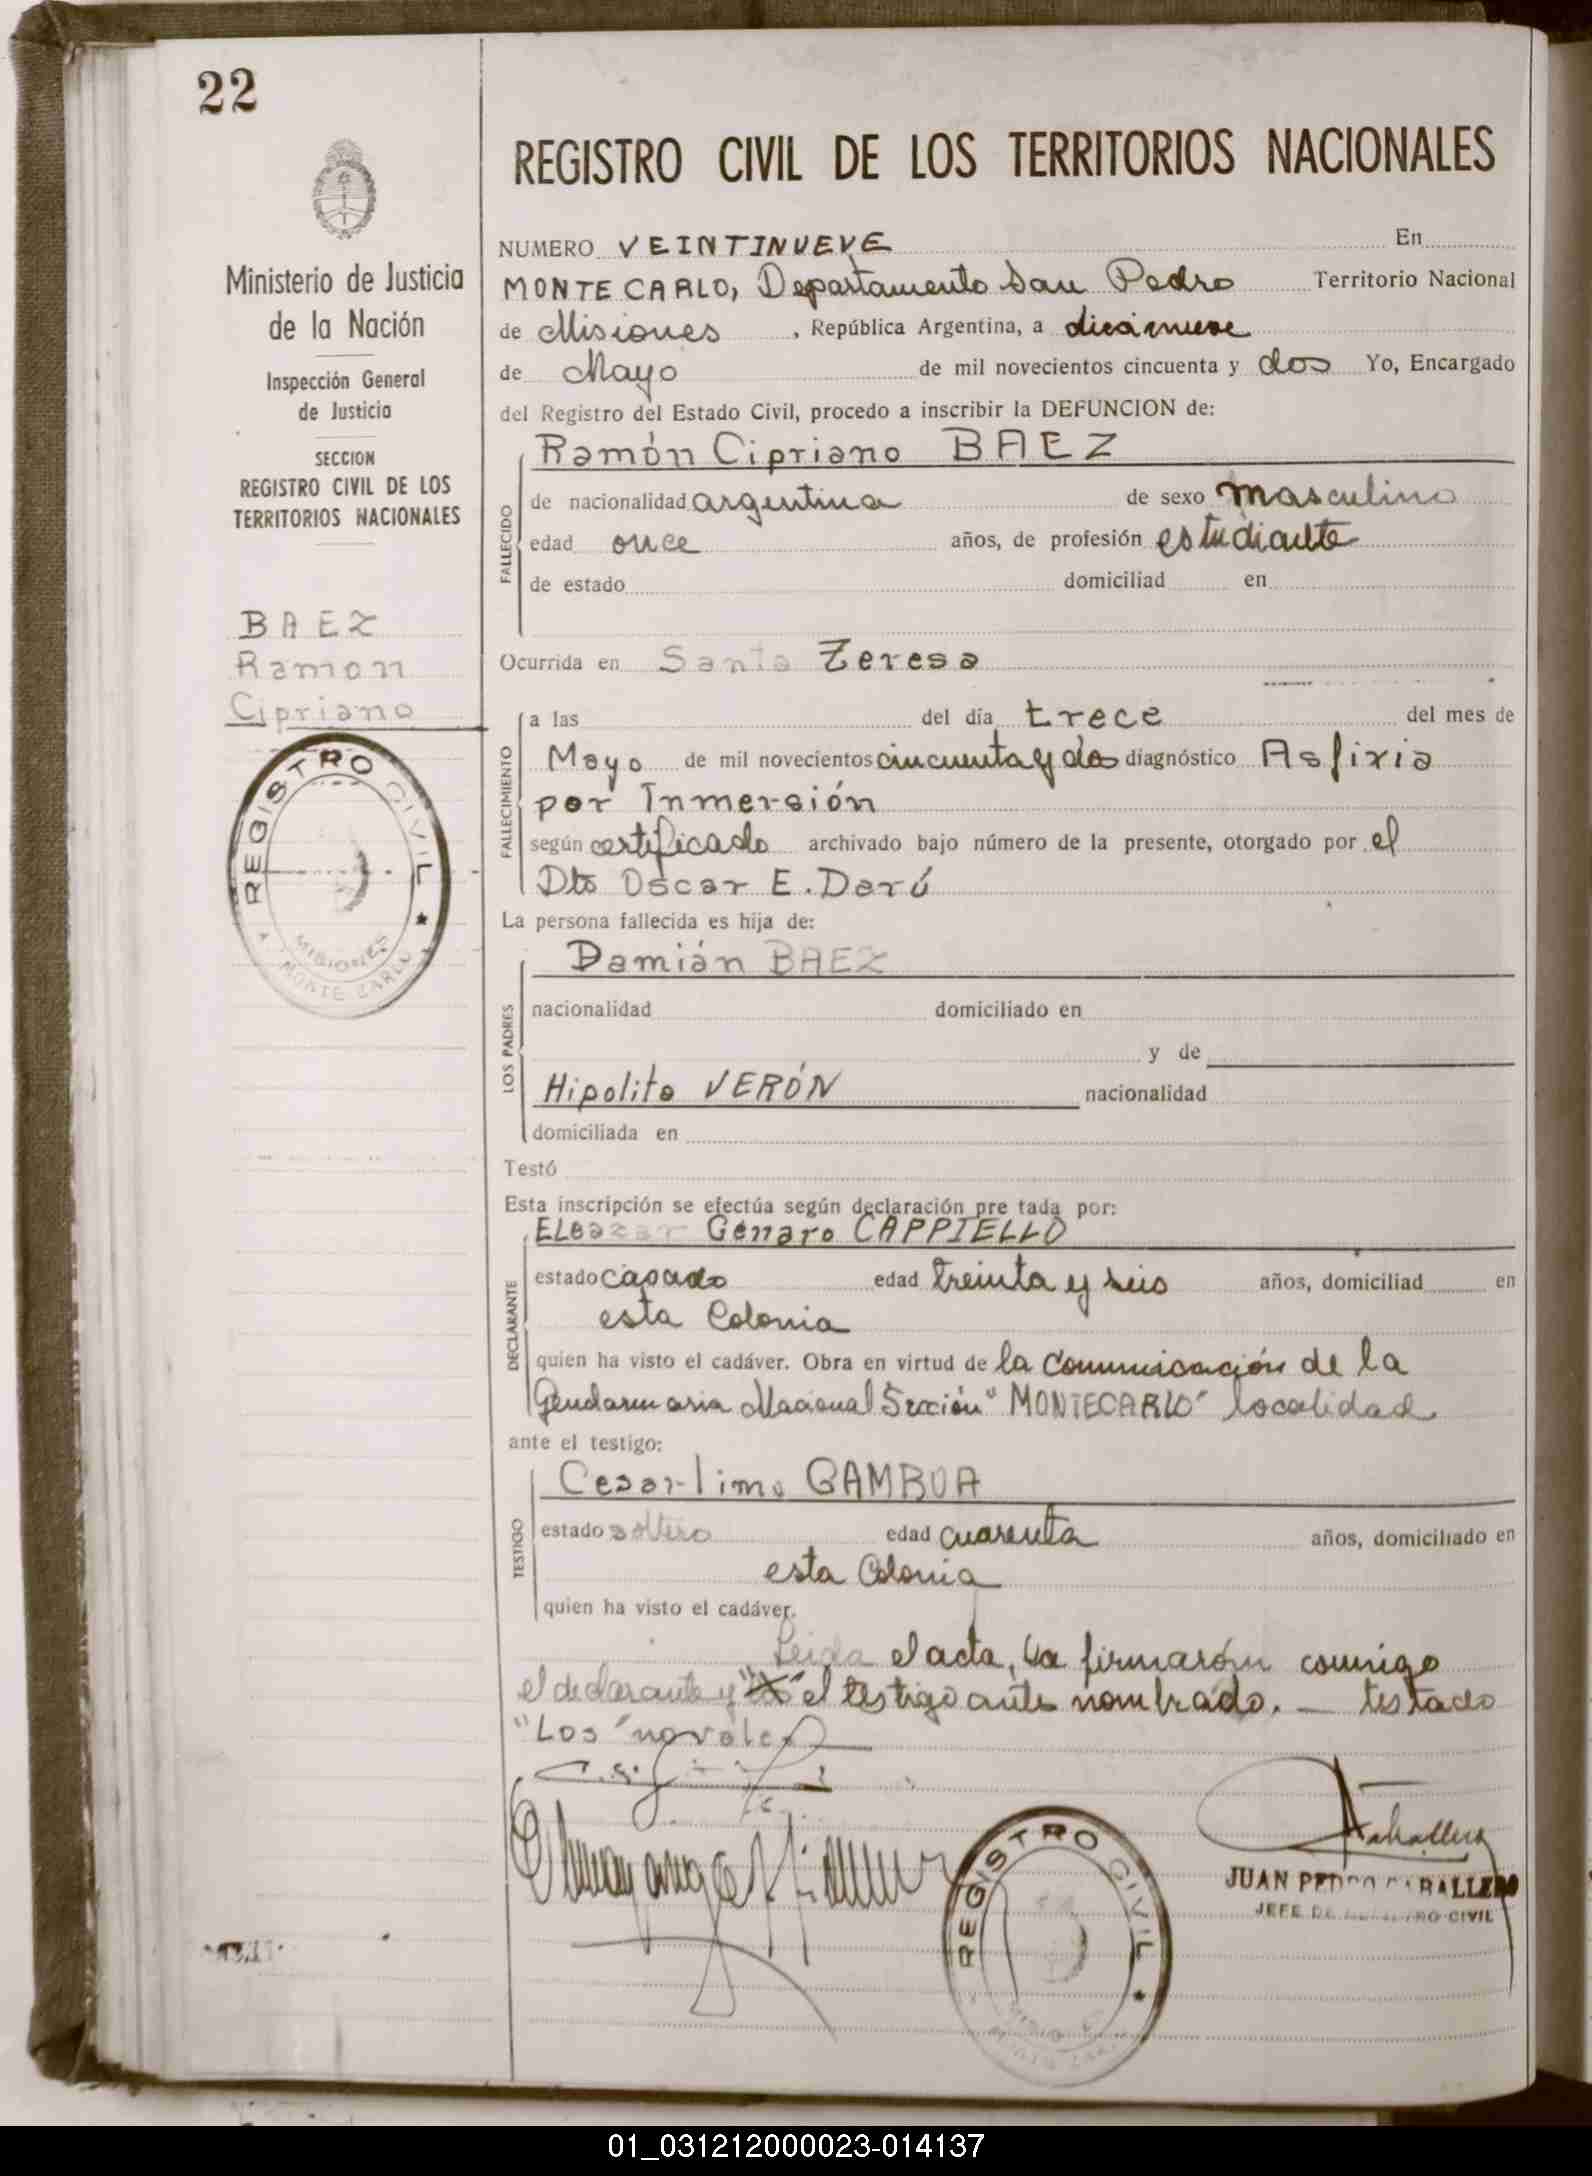 22
Ministerio de Justicia
de la Nación
Inspección General
de Justicia
SECCION
REGISTRO CIVIL DE LOS
TERRITORIOS NACIONALES
BAEZ
Ramon
Cipriano
REGISTRO CIVIL
MISIONES
MONTE CARLO
REGISTRO CIVIL DE LOS TERRITORIOS NACIONALES
NUMERO VEINTINUEVE En
MONTECARLO, Departamento San Pedro Territorio Nacional
de Misiones, República Argentina, a diecinueve
de Mayo de mil novecientos cincuenta y dos Yo, Encargado
del Registro del Estado Civil, procedo a inscribir la DEFUNCION de:
Ramón Cipriano BAEZ
FALLECIDO
de nacionalidad argentina de sexo masculino
edad once años, de profesión estudiante
de estado domiciliad en
Ocurrida en Santa Teresa
FALLECIMIENTO
a las del día trece del mes de
Mayo de mil novecientos cincuenta y dos diagnóstico Asfixia
por Inmersión
según certificado archivado bajo número de la presente, otorgado por el
Dto Oscar E. Darú
La persona fallecida es hija de:
Damián BAEZ
LOS PADRES
nacionalidad domiciliado en
y de
Hipolita VERÓN nacionalidad
domiciliada en
Testó
Esta inscripción se efectúa según declaración pre tada por:
Eleazar Genaro CAPPIELLO
DECLARANTE
estado casado edad treinta y seis años, domiciliad en
esta Colonia
quien ha visto el cadáver. Obra en virtud de la Comunicación de la
Gendarmaria Nacional Sección "MONTECARLO" localidad
ante el testigo:
GAMBOA
TESTIGO
estado soltero edad cuarenta años, domiciliado en
esta Colonia
quien ha visto el cadáver.
Leida el acta, la firmarón conmigo
el declarante y "los" el testigo ante nombrado. — testado
"Los" no vale
JUAN PEDRO CABALLERO
JEFE DE REGISTRO CIVIL
REGISTRO CIVIL
01_031212000023-014137